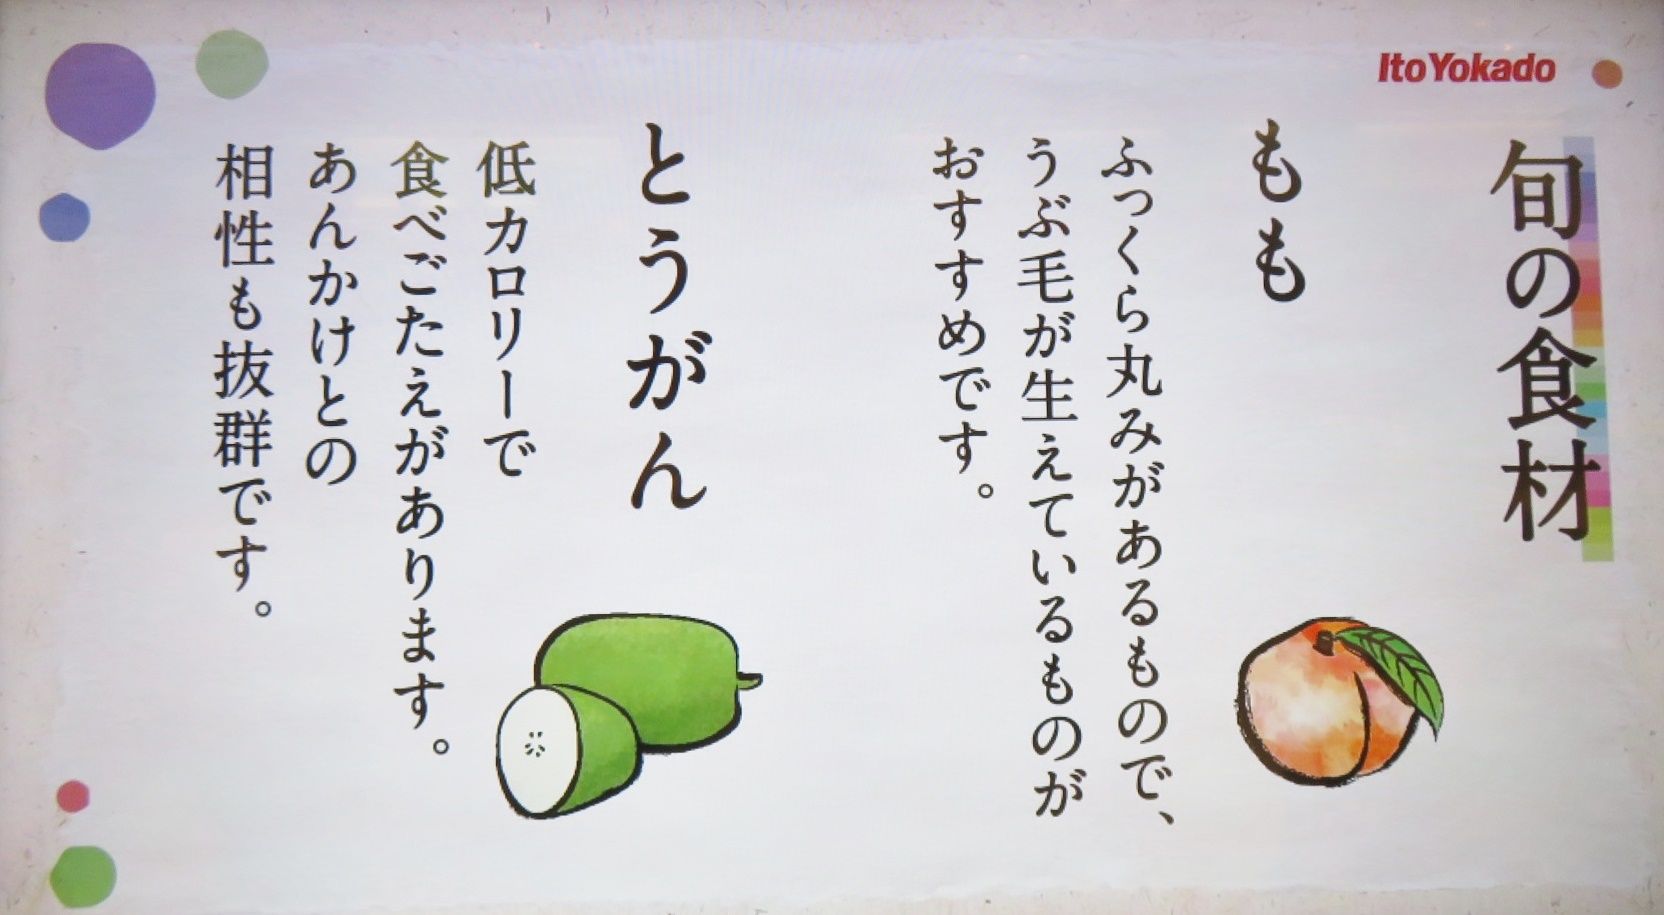 ItoYokado
旬の食材
もも
ふっくら丸みがあるもので、
うぶ毛が生えているものが
おすすめです。
とうがん
低カロリーで
食べごたえがあります。
あんかけとの
相性も抜群です。